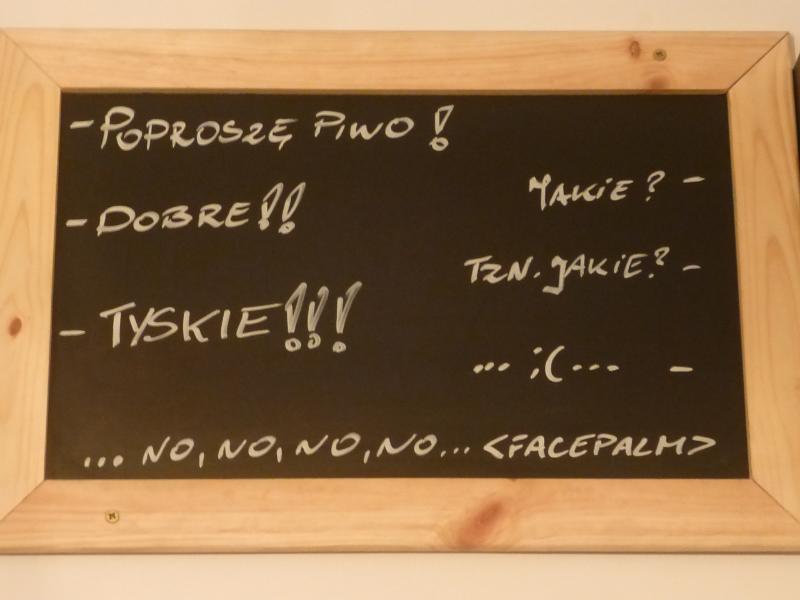 - POPROSZĘ PIWO!
JAKIE? -
- DOBRE!!
TZN. JAKIE? -
- TYSKIE!!!
... ;(... -
... NO, NO, NO, NO... <FACEPALM>